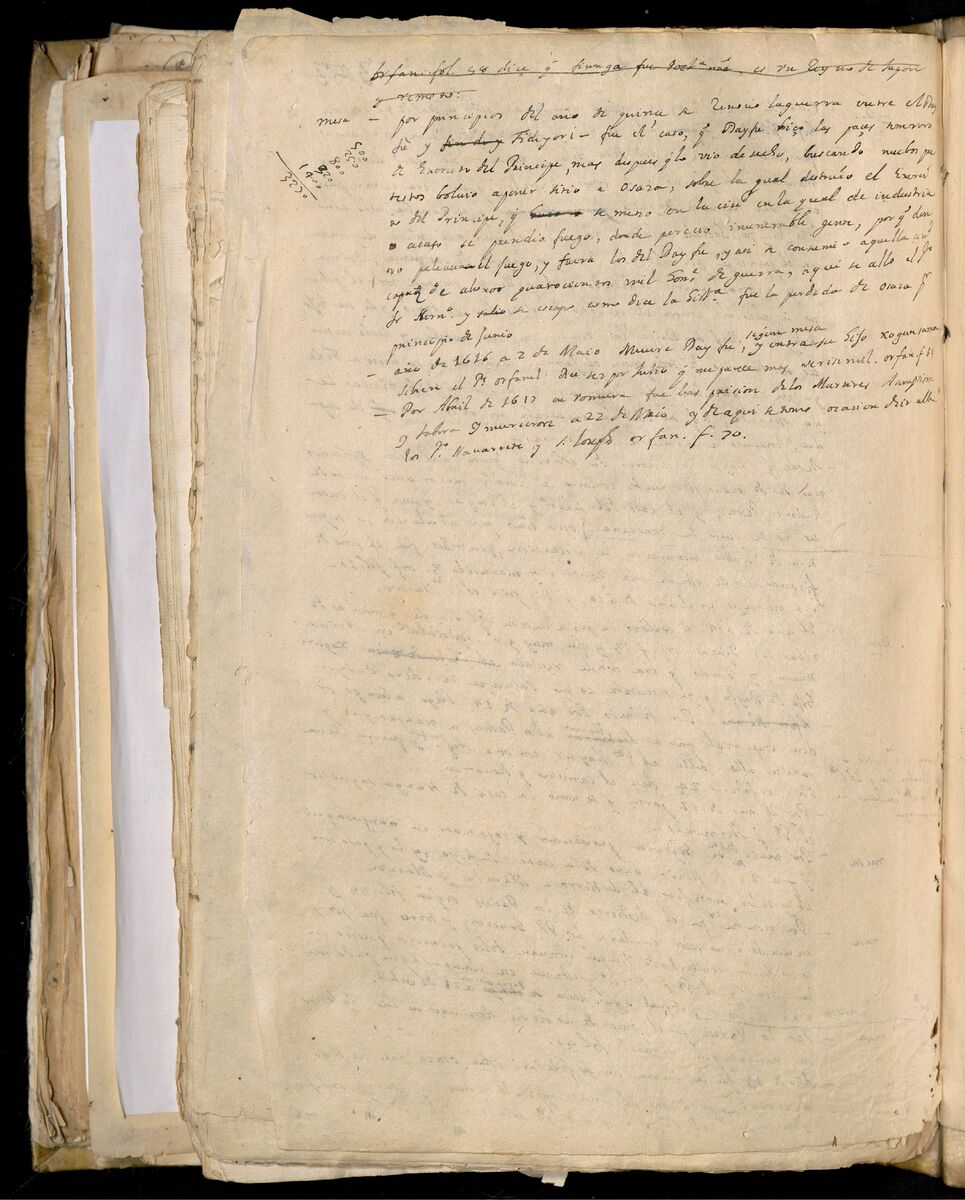 orfanel fol. 58 dice, q̃ siunga fue , es un Reyno de Japon
y remoto:
mesa — por principios del año de quince se renovo la guerra entre el Day
fu y fin de y Fideyori — fue el caso, q̃ Dayfu hiço las paces temeroso
de Exercito del Principe, mas despues q̃ lo vio desecho, buscando nuebos pre
textos bolvio a poner sitio a Osaca, sobre la qual destruio el Exerci
to del Principe, q̃ se metio en la ciud en la qual de industria
o acaso se prendio fuego, donde perecio inumerable gente, porq̃ den
tro peleaua el fuego, y fuera los del Dayfu, y asi se consumio aquella
capaz de abexos quatrocientos mil hom.s de guerra, aqui se allo el P.e
fr Hern.o y salio se escapo como dice la Hist.a fue la perdida de Osaca p
principio de Junio
— año de 1616 a 2 de Maio Muere Dayfu, segun mesa y entra su hijo xogunsama
si bien el P.e orfanel dice ser por Julio q̃ me parece mas verisimil. orfan. f.
— Por Abril de 1617 en romura fue las prision de los Martires Asumpcion
y tabora y murieron a 22 de Maio y de aqui se tomo ocasion de ir alla
los P.es Navarrete y S. Joseph orfan. f. 70.
500
5250
800
820
1400